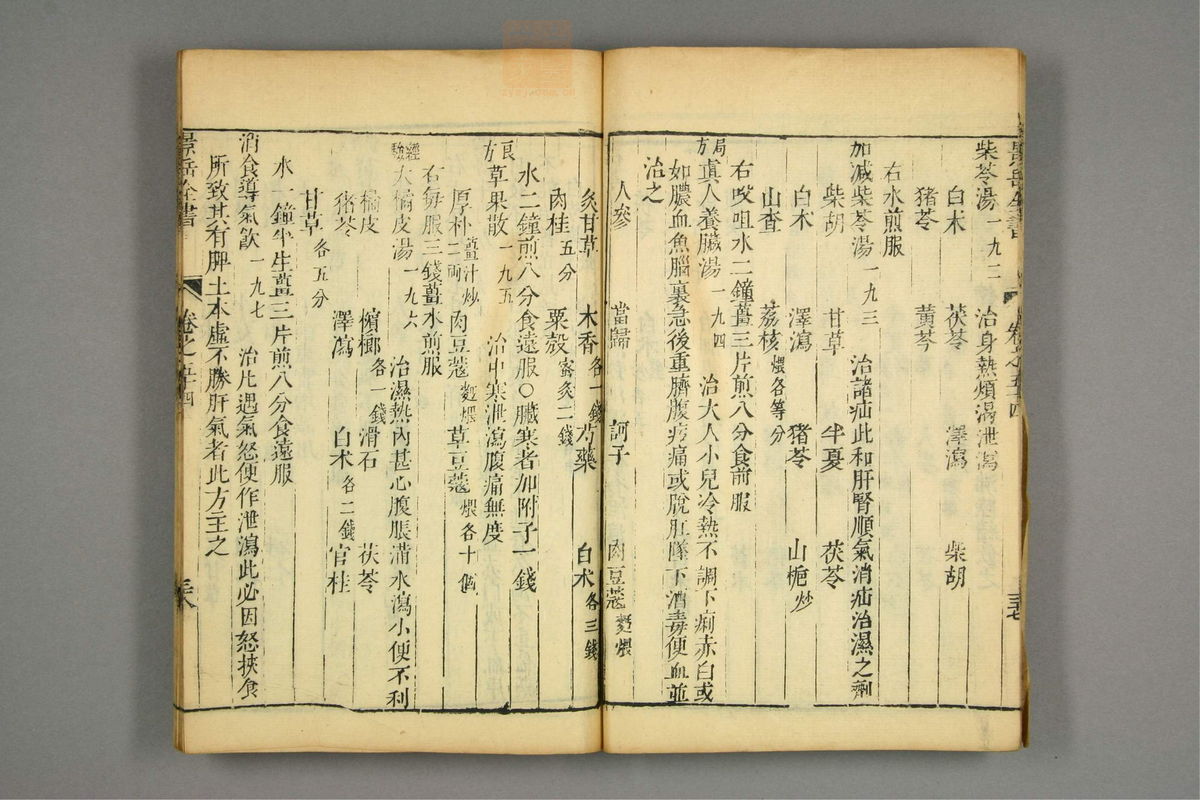 景岳全書 卷之五十四 三七
柴苓湯一九二 治身熱煩渴泄瀉
白术 茯苓 澤瀉 柴胡
猪苓 黃芩
右水煎服
加減柴苓湯一九三 治諸疝此和肝腎順氣消疝治濕之劑
柴胡 甘草 半夏 茯苓
白术 澤瀉 猪苓 山梔炒
山查 荔核煨各等分
右㕮咀水二鐘薑三片煎八分食前服
局方真人養臟湯一九四 治大人小兒冷熱不調下痢赤白或
如膿血魚腦裏急後重臍腹疼痛或脫肛墜下酒毒便血並
治之
人參 當歸 訶子 肉豆蔻麪煨
炙甘草 木香各一錢 芍藥 白术各三錢
肉桂五分 粟殼蜜炙二錢
水二鐘煎八分食遠服〇臟寒者加附子一錢
良方草果散一九五 治中寒泄瀉腹痛無度
厚朴二兩薑汁炒 肉豆蔻麪煨 草豆蔻煨各十個
右每服三錢薑水煎服
經驗大橘皮湯一九六 治濕熱內甚心腹脹滿水瀉小便不利
橘皮 檳榔各一錢 滑石 茯苓
猪苓 澤瀉 白术各二錢 官桂
甘草各五分
水一鐘半生薑三片煎八分食遠服
消食導氣飲一九七 治凡遇氣怒便作泄瀉此必因怒挾食
所致其有脾土本虛不勝肝氣者此方主之
景岳全書 卷之五十四 三八